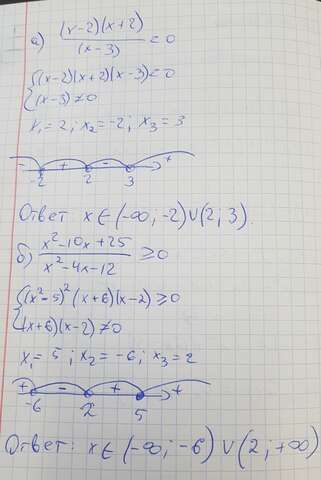 а) (x-2)(x+2)/(x-3) < 0
{(x-2)(x+2)(x-3)<0
{(x-3)≠0
x₁=2; x₂=-2; x₃=3
- + - +
-2 2 3
Ответ: x∈(-∞;-2)∪(2;3).
б) x²-10x+25/x²-4x-12 ≥0
{(x²-5)²(x+6)(x-2)≥0
{(x+6)(x-2)≠0
x₁=5; x₂=-6; x₃=2
+ - + +
-6 2 5
Ответ: x∈(-∞;-6)∪(2;+∞)